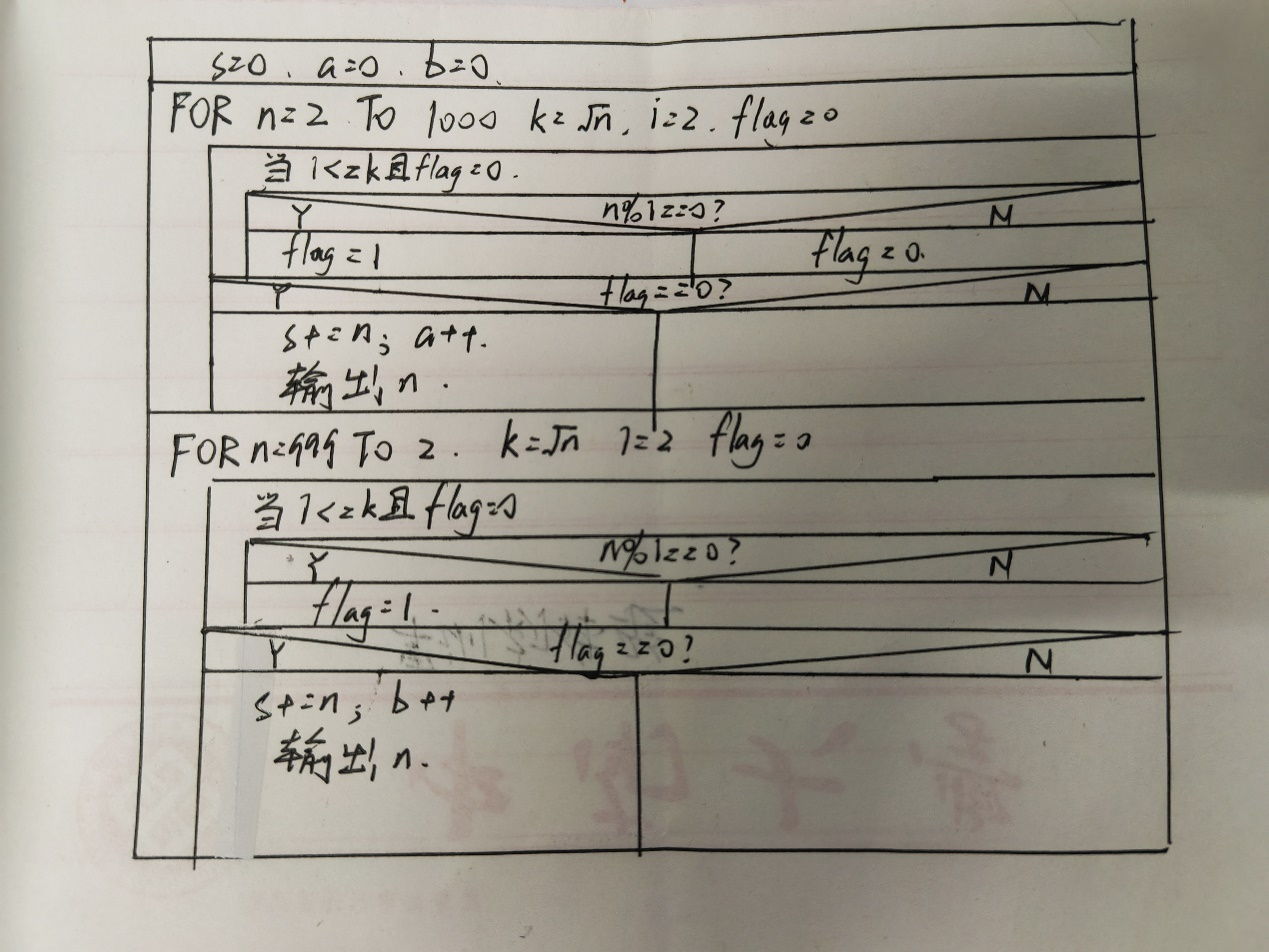 s=0. a=0. b=0.
FOR n=2 TO 1000 k=√n. i=2. flag=0
当 i<=k且flag=0.
n%i==0?
Y N
flag=1 flag=0.
flag==0?
Y N
s+=n; a++.
输出n.
FOR n=999 TO 2. k=√n i=2 flag=0
当 i<=k且flag=0
n%i==0?
Y N
flag=1.
flag==0?
Y N
s+=n; b++
输出n.